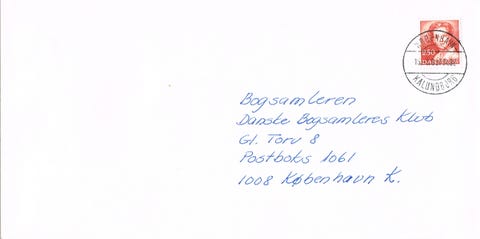 KALUNDBORG
Bogsamleren
Danske Bogsamleres Klub
Gl. Torv 8
Postboks 1061
1008 København K.